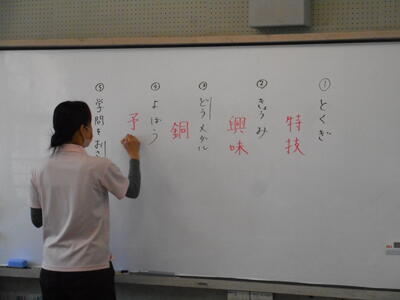 ① とくぎ
特技
② きょうみ
興味
③ どうメダル
銅
④ よぼう
予
⑤ 学問をおさ